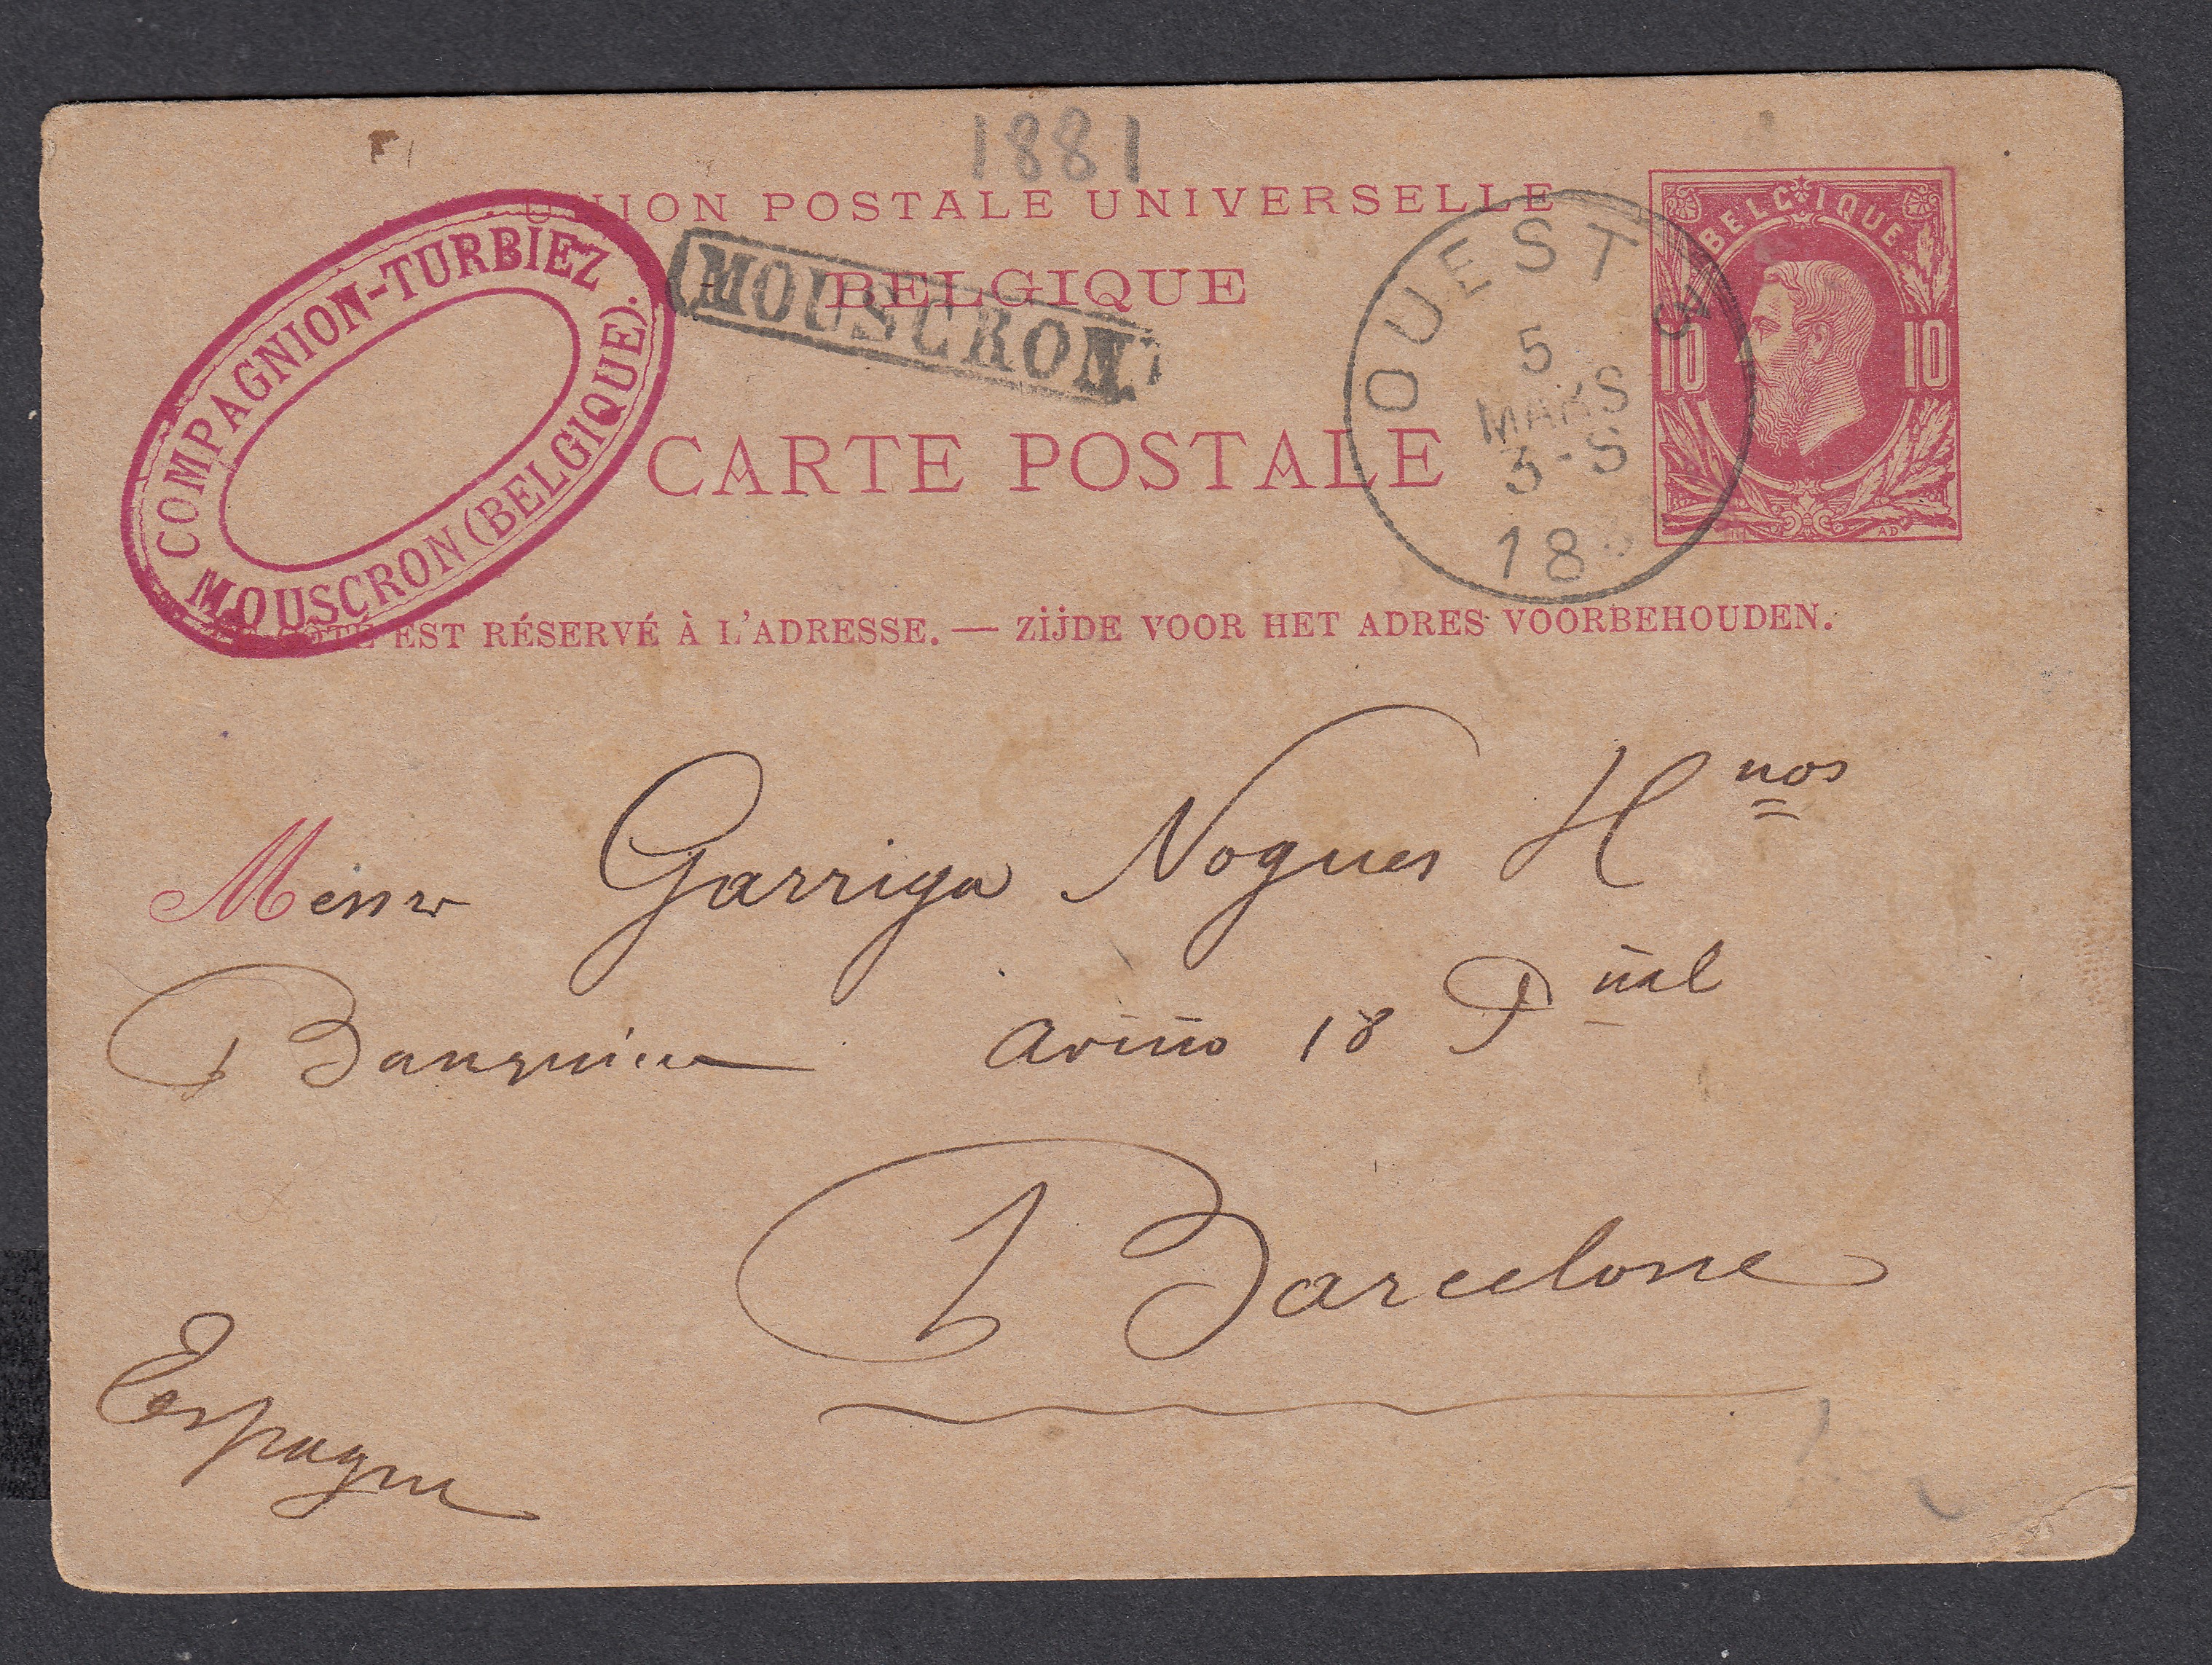 1881
UNION POSTALE UNIVERSELLE
BELGIQUE
CARTE POSTALE
CÔTÉ EST RÉSERVÉ À L'ADRESSE. — ZIJDE VOOR HET ADRES VOORBEHOUDEN.
COMPAGNION-TURBIEZ
MOUSCRON (BELGIQUE).
MOUSCRON
OUEST
5
MARS
3-S
18
BELGIQUE
10 10
Messrs Garriga Nogues Hnos
Banquiers Aviño 18 Pñal
Barcelone
Espagne